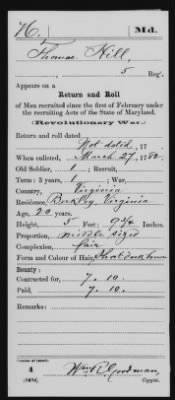 H. Md.
Thomas Hill,
5 Reg't.
Appears on a
Return and Roll
of Men recruited since the first of February under
the recruiting Acts of the State of Maryland.
(Revolutionary War.)
Return and roll dated
Not dated, 17
When enlisted, March 27, 1780.
Old Soldier, 1 ; Recruit,
Term: 3 years, 1 ; War,
Country, Virginia
Residence, Berkley, Virginia
Age, 20 years.
Height, 5 Feet; 9 3/4 Inches.
Proportion, middle sized
Complexion, fair
Form and Colour of Hair, Short dark brown
Bounty:
Contracted for, 7. 10.
Paid, 7. 10.
Remarks:
4
Goodman,
Copyist.